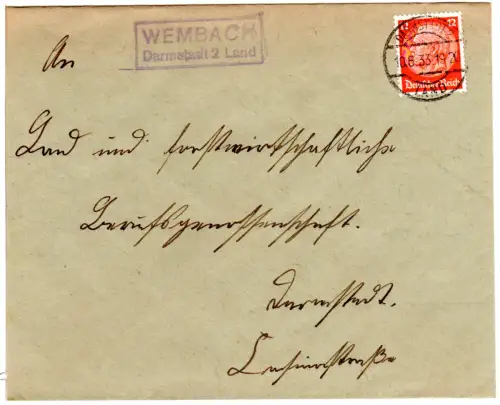 WEMBACH
Darmstadt 2 Land
12 12
Deutsches Reich
10.6.33.19
An
Land und forstwirtschaftliche
Berufsgenossenschaft.
Darmstadt.